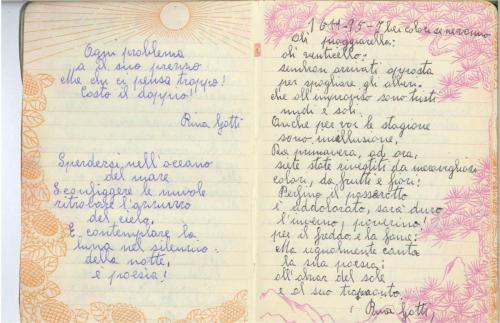 Ogni problema
a il suo prezzo
Ma chi ci pensa troppo!
Costo il doppio!!
Rina Gotti
Sperdersi nell'oceano
del mare
Sconfiggere le nuvole
ritrovare l'azzurro
del cielo,
E contemplare la
luna nel silenzio
della notte,
è poesia!
I bei colori se ne vanno
Oh pioggiarella:
oh venticello:
sembran arrivati apposta
per spogliare gli alberi.
che all'improviso sono tristi
nudi e soli.
Anche per voi le stagione
sono un'illusione,
Da primavera, ad ora,
siete state rivestiti da meravigliosi
colori, da frutti e fiori:
Perfino il passerotto
è addolorato, sarà duro
l'inverno, poverino!
per il freddo e la fame:
Ma ugualmente canta
la sua poesia:
all'alzar del sole
e al suo tramonto.
Rina Gotti,